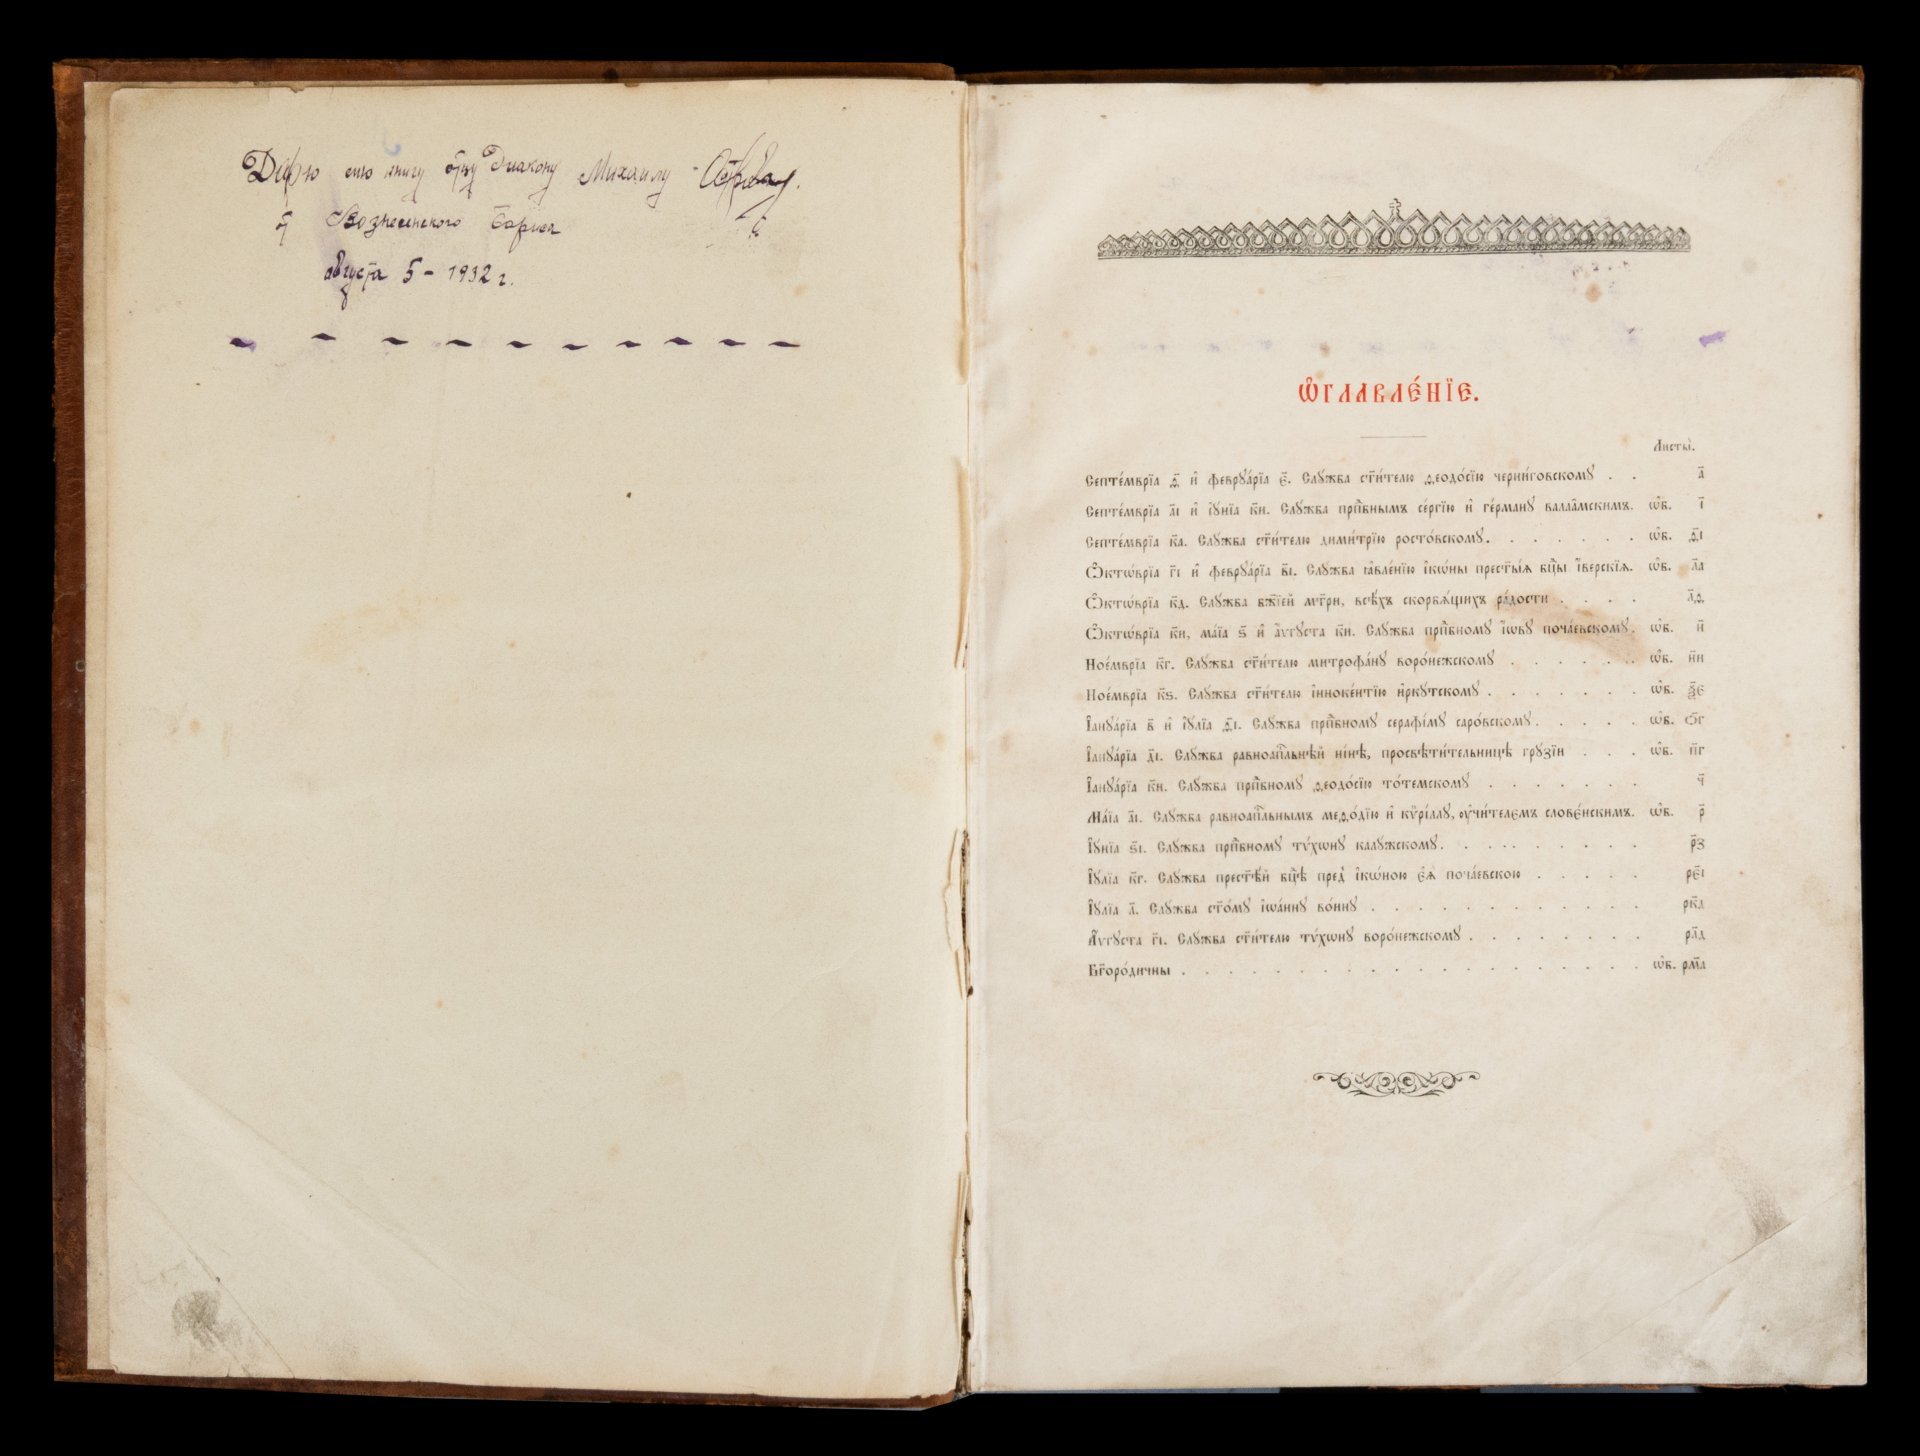 Дарю сию книгу отцу Диакону Михаилу
от Вознесенского Бориса
августа 5 - 1932 г.
Ѡ҆ГЛАВЛЕ́НЇЕ.
Листы̀.
Септе́мврїа ѳ҃ и҆ феврꙋа́рїа є҃. Слꙋжба ст҃и́телю ѳеодо́сїю черни́говскомꙋ . . а҃
Септе́мврїа а҃і и҆ і҆ꙋ́нїа к҃и. Слꙋжба прпⷣбнымъ се́ргїю и҆ ге́рманꙋ валаа́мскимъ. ѡ҆б. і҃
Септе́мврїа к҃а. Слꙋжба ст҃и́телю дими́трїю росто́вскомꙋ. . . . . . . ѡ҆б. ѳ҃і
Ѻ҆ктѡ́врїа г҃і и҆ феврꙋа́рїа в҃і. Слꙋжба ꙗ҆вле́нїю і҆кѡ́ны прест҃ы́ѧ бцⷣы і҆́верскїѧ. ѡ҆б. л҃а
Ѻ҆ктѡ́врїа к҃д. Слꙋжба бж҃їей мт҃ри, всѣ́хъ скорбѧ́щихъ ра́дости . . . . л҃ѳ
Ѻ҆ктѡ́врїа к҃и, ма́їа ѕ҃ и҆ а҆́ѵгꙋста к҃и. Слꙋжба прпⷣбномꙋ і҆́ѡвꙋ поча́евскомꙋ. ѡ҆б. н҃
Ное́мврїа к҃г. Слꙋжба ст҃и́телю митрофа́нꙋ воро́нежскомꙋ . . . . . . ѡ҆б. н҃и
Ное́мврїа к҃ѕ. Слꙋжба ст҃и́телю і҆нноке́нтїю и҆ркꙋ́тскомꙋ . . . . . . . ѡ҆б. ѯ҃є
І҆аннꙋа́рїа в҃ и҆ і҆ꙋ́лїа ѳ҃і. Слꙋжба прпⷣбномꙋ серафі́мꙋ саро́вскомꙋ. . . . . ѡ҆б. ѻ҃г
І҆аннꙋа́рїа д҃і. Слꙋжба равноапⷭ҇льнѣй ні́нѣ, просвѣти́тельницѣ грꙋ́зїи . . . ѡ҆б. п҃г
І҆аннꙋа́рїа к҃и. Слꙋжба прпⷣбномꙋ ѳеодо́сїю то́темскомꙋ . . . . . . . ч҃
Ма́їа а҃і. Слꙋжба равноапⷭ҇льнымъ меѳо́дїю и҆ кѷрі́ллꙋ, ᲂу҆чи́телємъ слове́нскимъ. ѡ҆б. р҃
І҆ꙋ́нїа ѕ҃і. Слꙋжба прпⷣбномꙋ тѵ́хѡнꙋ калꙋ́жскомꙋ. . . . . . . . . р҃з
І҆ꙋ́лїа к҃г. Слꙋжба прест҃ѣ́й бцⷣѣ пред̾ і҆кѡ́ною є҆ѧ̀ поча́евскою . . . . . рє҃і
І҆ꙋ́лїа л҃. Слꙋжба ст҃о́мꙋ і҆ѡа́ннꙋ во́инꙋ . . . . . . . . . . . . рк҃д
А҆́ѵгꙋста г҃і. Слꙋжба ст҃и́телю тѵ́хѡнꙋ воро́нежскомꙋ . . . . . . . . рл҃д
Бг҃оро́дичны . . . . . . . . . . . . . . . . . . . . ѡ҆б. рм҃а